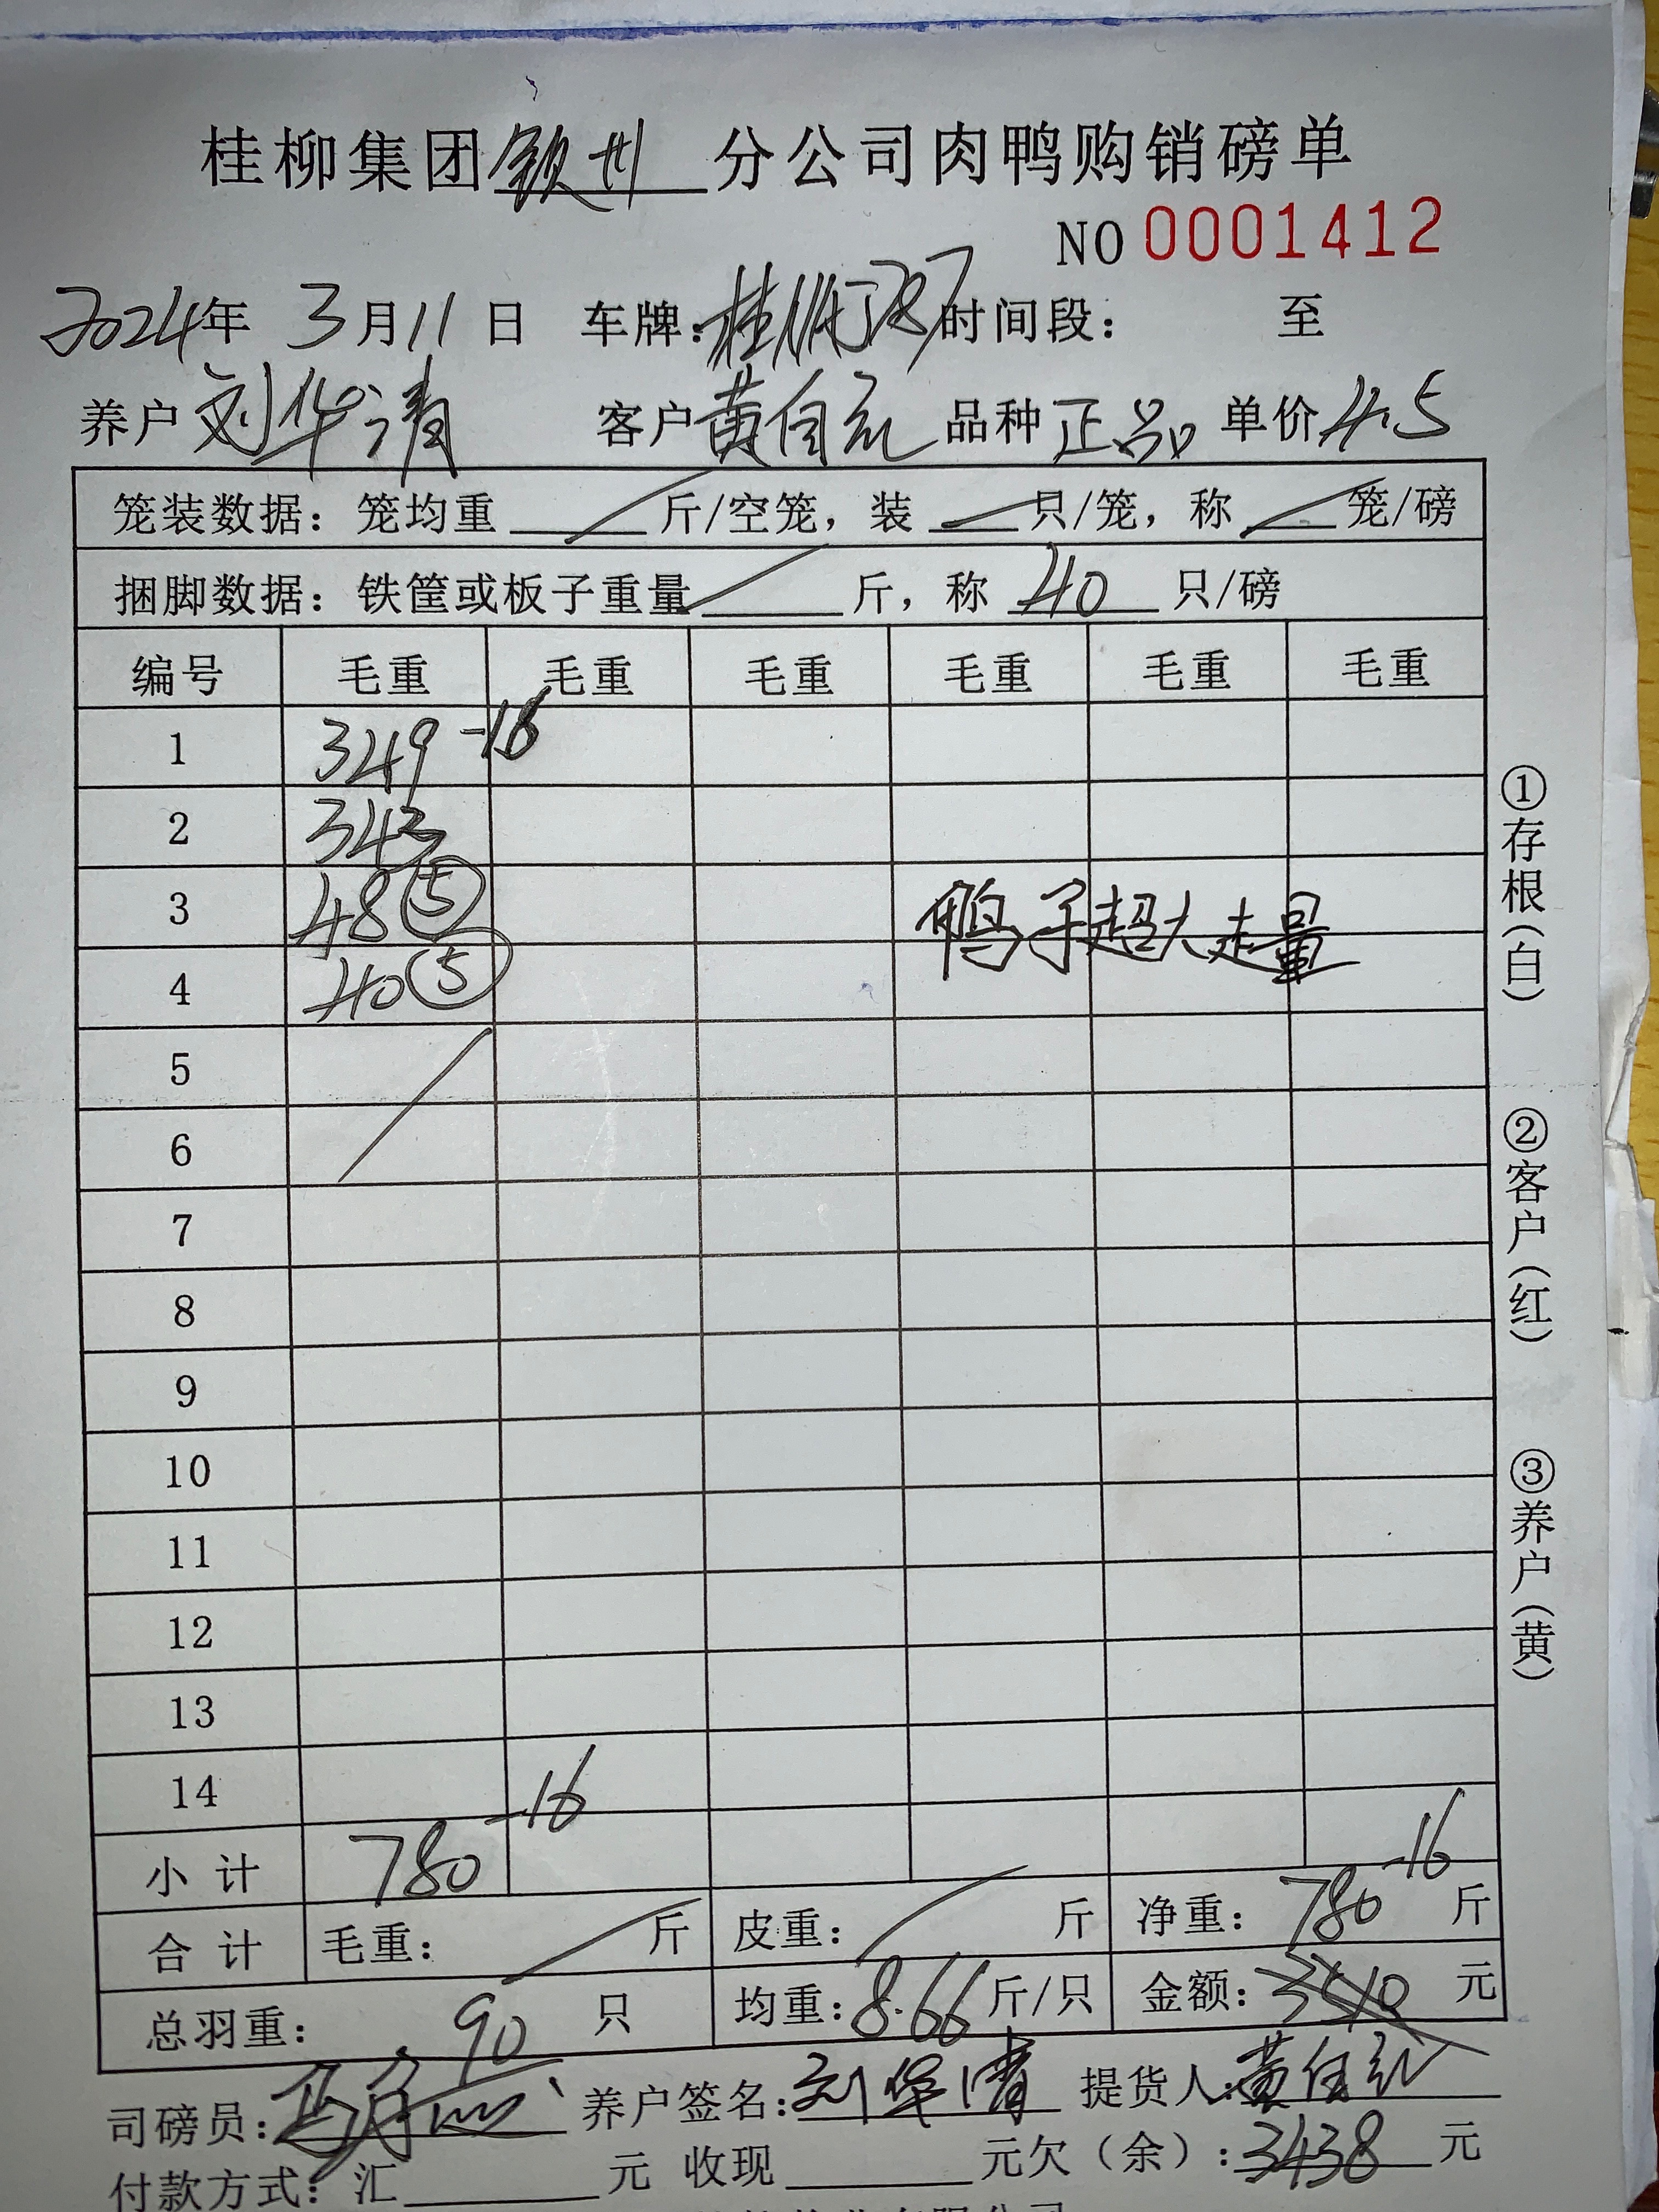 桂柳集团钦州分公司肉鸭购销磅单
NO 0001412
2024年 3月11日 车牌: 时间段: 至
养户 刘华清 客户 黄自 品种 正品 单价 4.5
笼装数据: 笼均重 斤/空笼, 装 只/笼, 称 笼/磅
捆脚数据: 铁筐或板子重量 斤, 称 40 只/磅
编号 毛重 毛重 毛重 毛重 毛重 毛重
1 349 -16
2 343
3 48⑤
4 40⑤ 鸭子超大走量
5
6
7
8
9
10
11
12
13
14
小计 780 -16
合计 毛重: 斤 皮重: 斤 净重: 780 -16 斤
总羽重: 90 只 均重: 8.66 斤/只 金额: 3510 元
司磅员: 养户签名: 刘华清 提货人: 黄
付款方式: 汇 元 收现 元欠(余): 3438 元
①存根(白)
②客户(红)
③养户(黄)